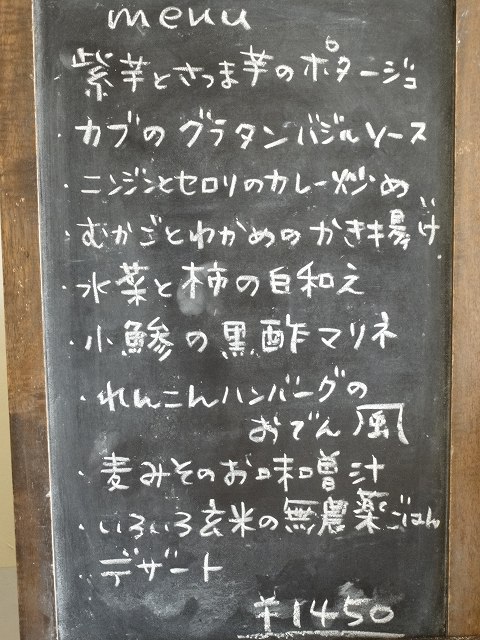 menu
紫芋とさつま芋のポタージュ
・カブのグラタンバジルソース
・ニンジンとセロリのカレー炒め
・むかごとわかめのかき揚げ
・水菜と柿の白和え
・小鯵の黒酢マリネ
・れんこんハンバーグの
おでん風
・麦みそのお味噌汁
・いろいろ玄米の無農薬ごはん
・デザート
¥1450